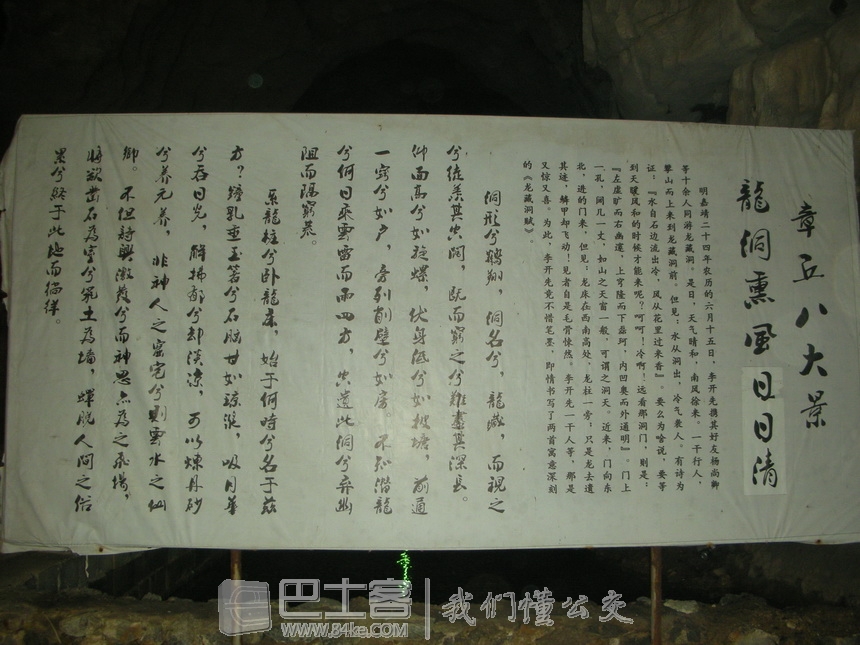 章丘八大景
龍洞熏风日日清
明嘉靖二十四年农历的六月十五日，李开先携其好友杨高卿
等十余人同游龙藏洞。是日，天气晴和，南风徐来。一干行人，
攀山而上来到龙藏洞前。但见：水从洞出，冷气袭人。有诗为
证：『水自石边流出冷，风从花里过来香』。要么为啥说，要等
到天暖风和的时候才能来呢？呵呵！冷啊！远看那洞门，则是：
『左虚旷而右幽邃，上穹隆而下磊砢，内凹奥而外通明』。门上
一孔，阔几一丈，如山之天窗一般，可谓之洞天。近来，门向东
北，进的门来，但见：龙床在西南高处，龙柱一旁；只是龙去遗
其迹，鳞甲却飞动！见者自是毛骨悚然。李开先一干人等，那是
又惊又喜。为此，李开先竟不惜笔墨，即情书写了两首寓意深刻
的《龙藏洞赋》
洞形兮鹤翔，洞名兮，龍藏，而視之
兮徒羨其空闊，既而窮之兮難盡其深長。
仰面高兮如旋螺，伏身低兮如坡塘，前通
一窍兮如户，旁列削壁兮如房。不知潜龍
兮何日乘雲雷而雨四方，空遺此洞兮弃幽
阻而隔窮荒。
系龍柱兮卧龍床，始于何時兮名于兹
方？鐘乳垂玉箸兮石脑甘如琼漿，吸月華
兮吞日光，解拂郁兮却淡凉，可以煉丹砂
兮养元养，非神人之窟宅兮則雲水之仙
鄉。不但詩興激發兮而神思亦為之飛揚，
將欲凿石為室兮筑土為墙，蟬脱人间之俗
累兮终于此地而徜徉。
巴士客
WWW.84ke.COM
我们懂公交